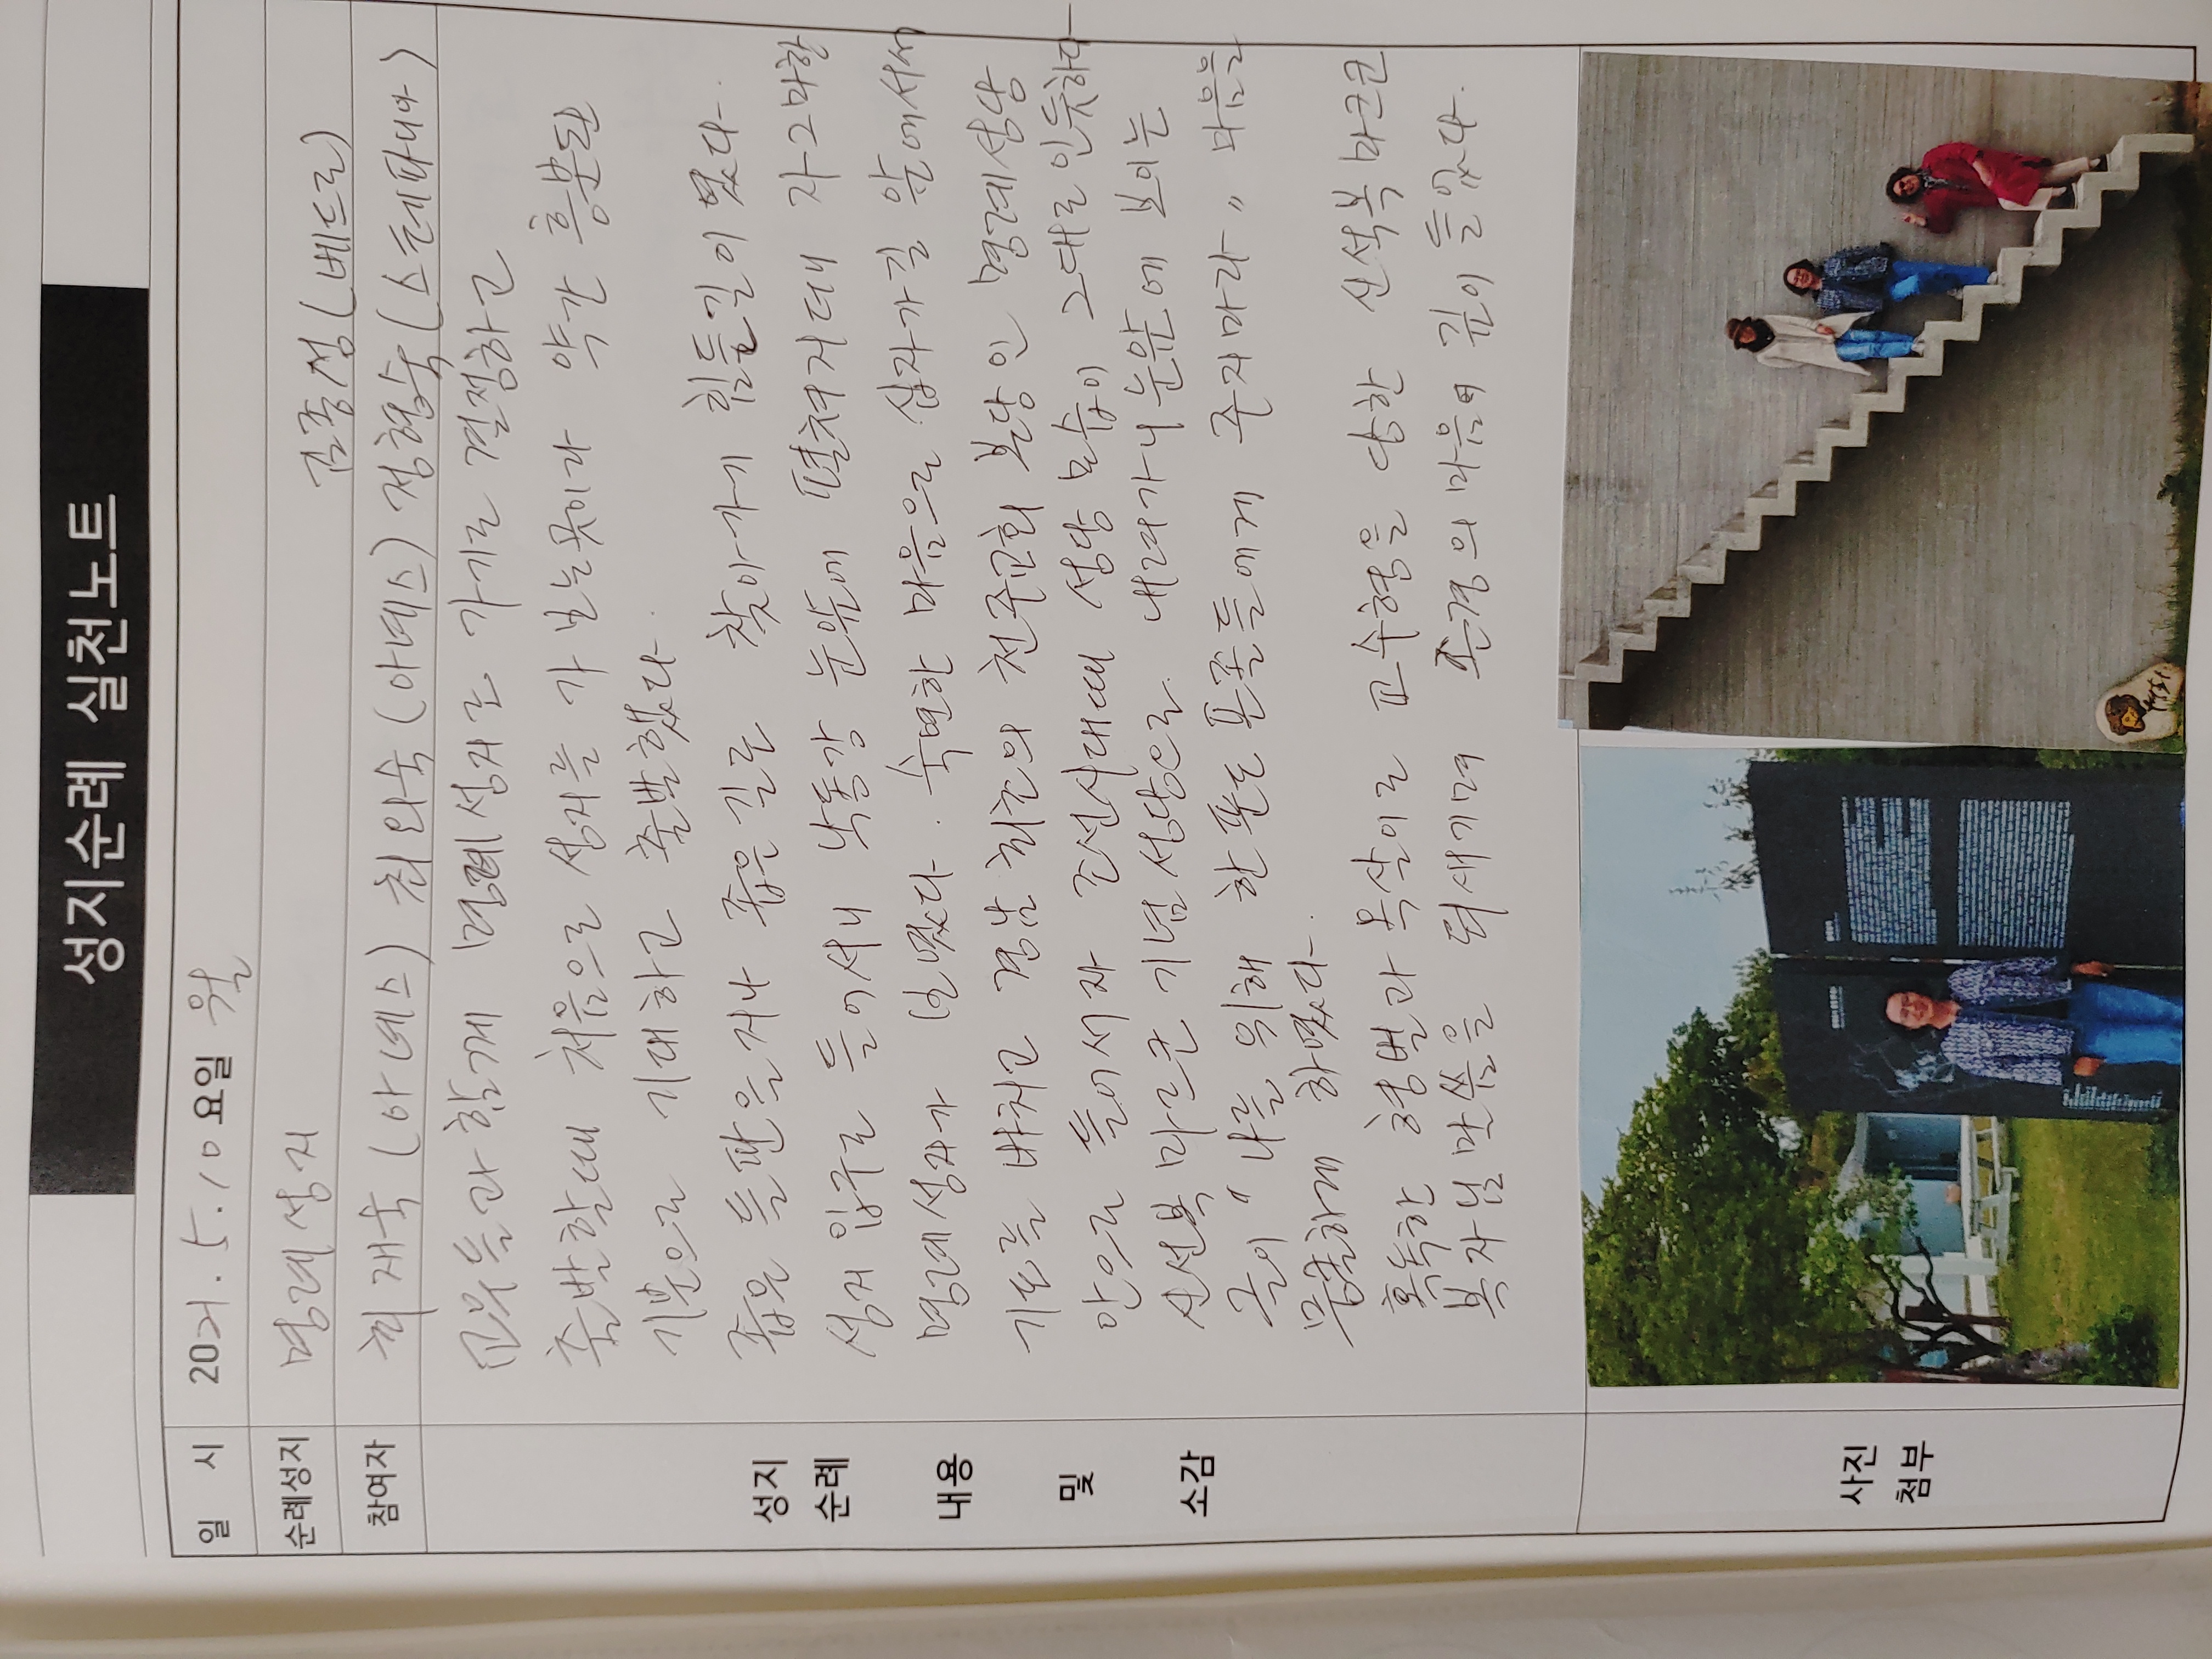 성지순례 실천노트
일 시 2021. 5. 10 요일 월
순례성지 명례성지
김종성(베드로)
참여자 최재숙(아녜스) 최외숙(아녜스) 정형숙(스테파니아)
성지 순례 내용 및 소감
교우들과 함께 명례성지로 가기로 결정하고
출발할때 처음으로 성지를 가 보는곳이라 약간 흥분된
기분으로 기대하고 출발했다.
좁은 들판을 지나 좁은길로 찾아가기 힘든길이였다.
성지입구로 들어서니 낙동강 눈앞에 펼쳐지더니 자그마한
명례성지가 보였다. 숙연한 마음으로 십자가길 앞에서서
기도를 바치고 경남 최초의 천주교회 본당인 명례성당
안으로 들어서자 조선시대때 성당 모습이 그대로인듯하다
신석복 마르코 기념성당으로 내려가니 눈앞에 보이는
글이 "나를 위해 한푼도 포졸들에게 주지마라" 마음을
뭉클하게 하였다.
혹독한 형벌과 몽살이로 교수형을 당한 신석복 마르코
복자님 말씀을 되새기며 존경의 마음이 깊이 들었다.
사진 첨부